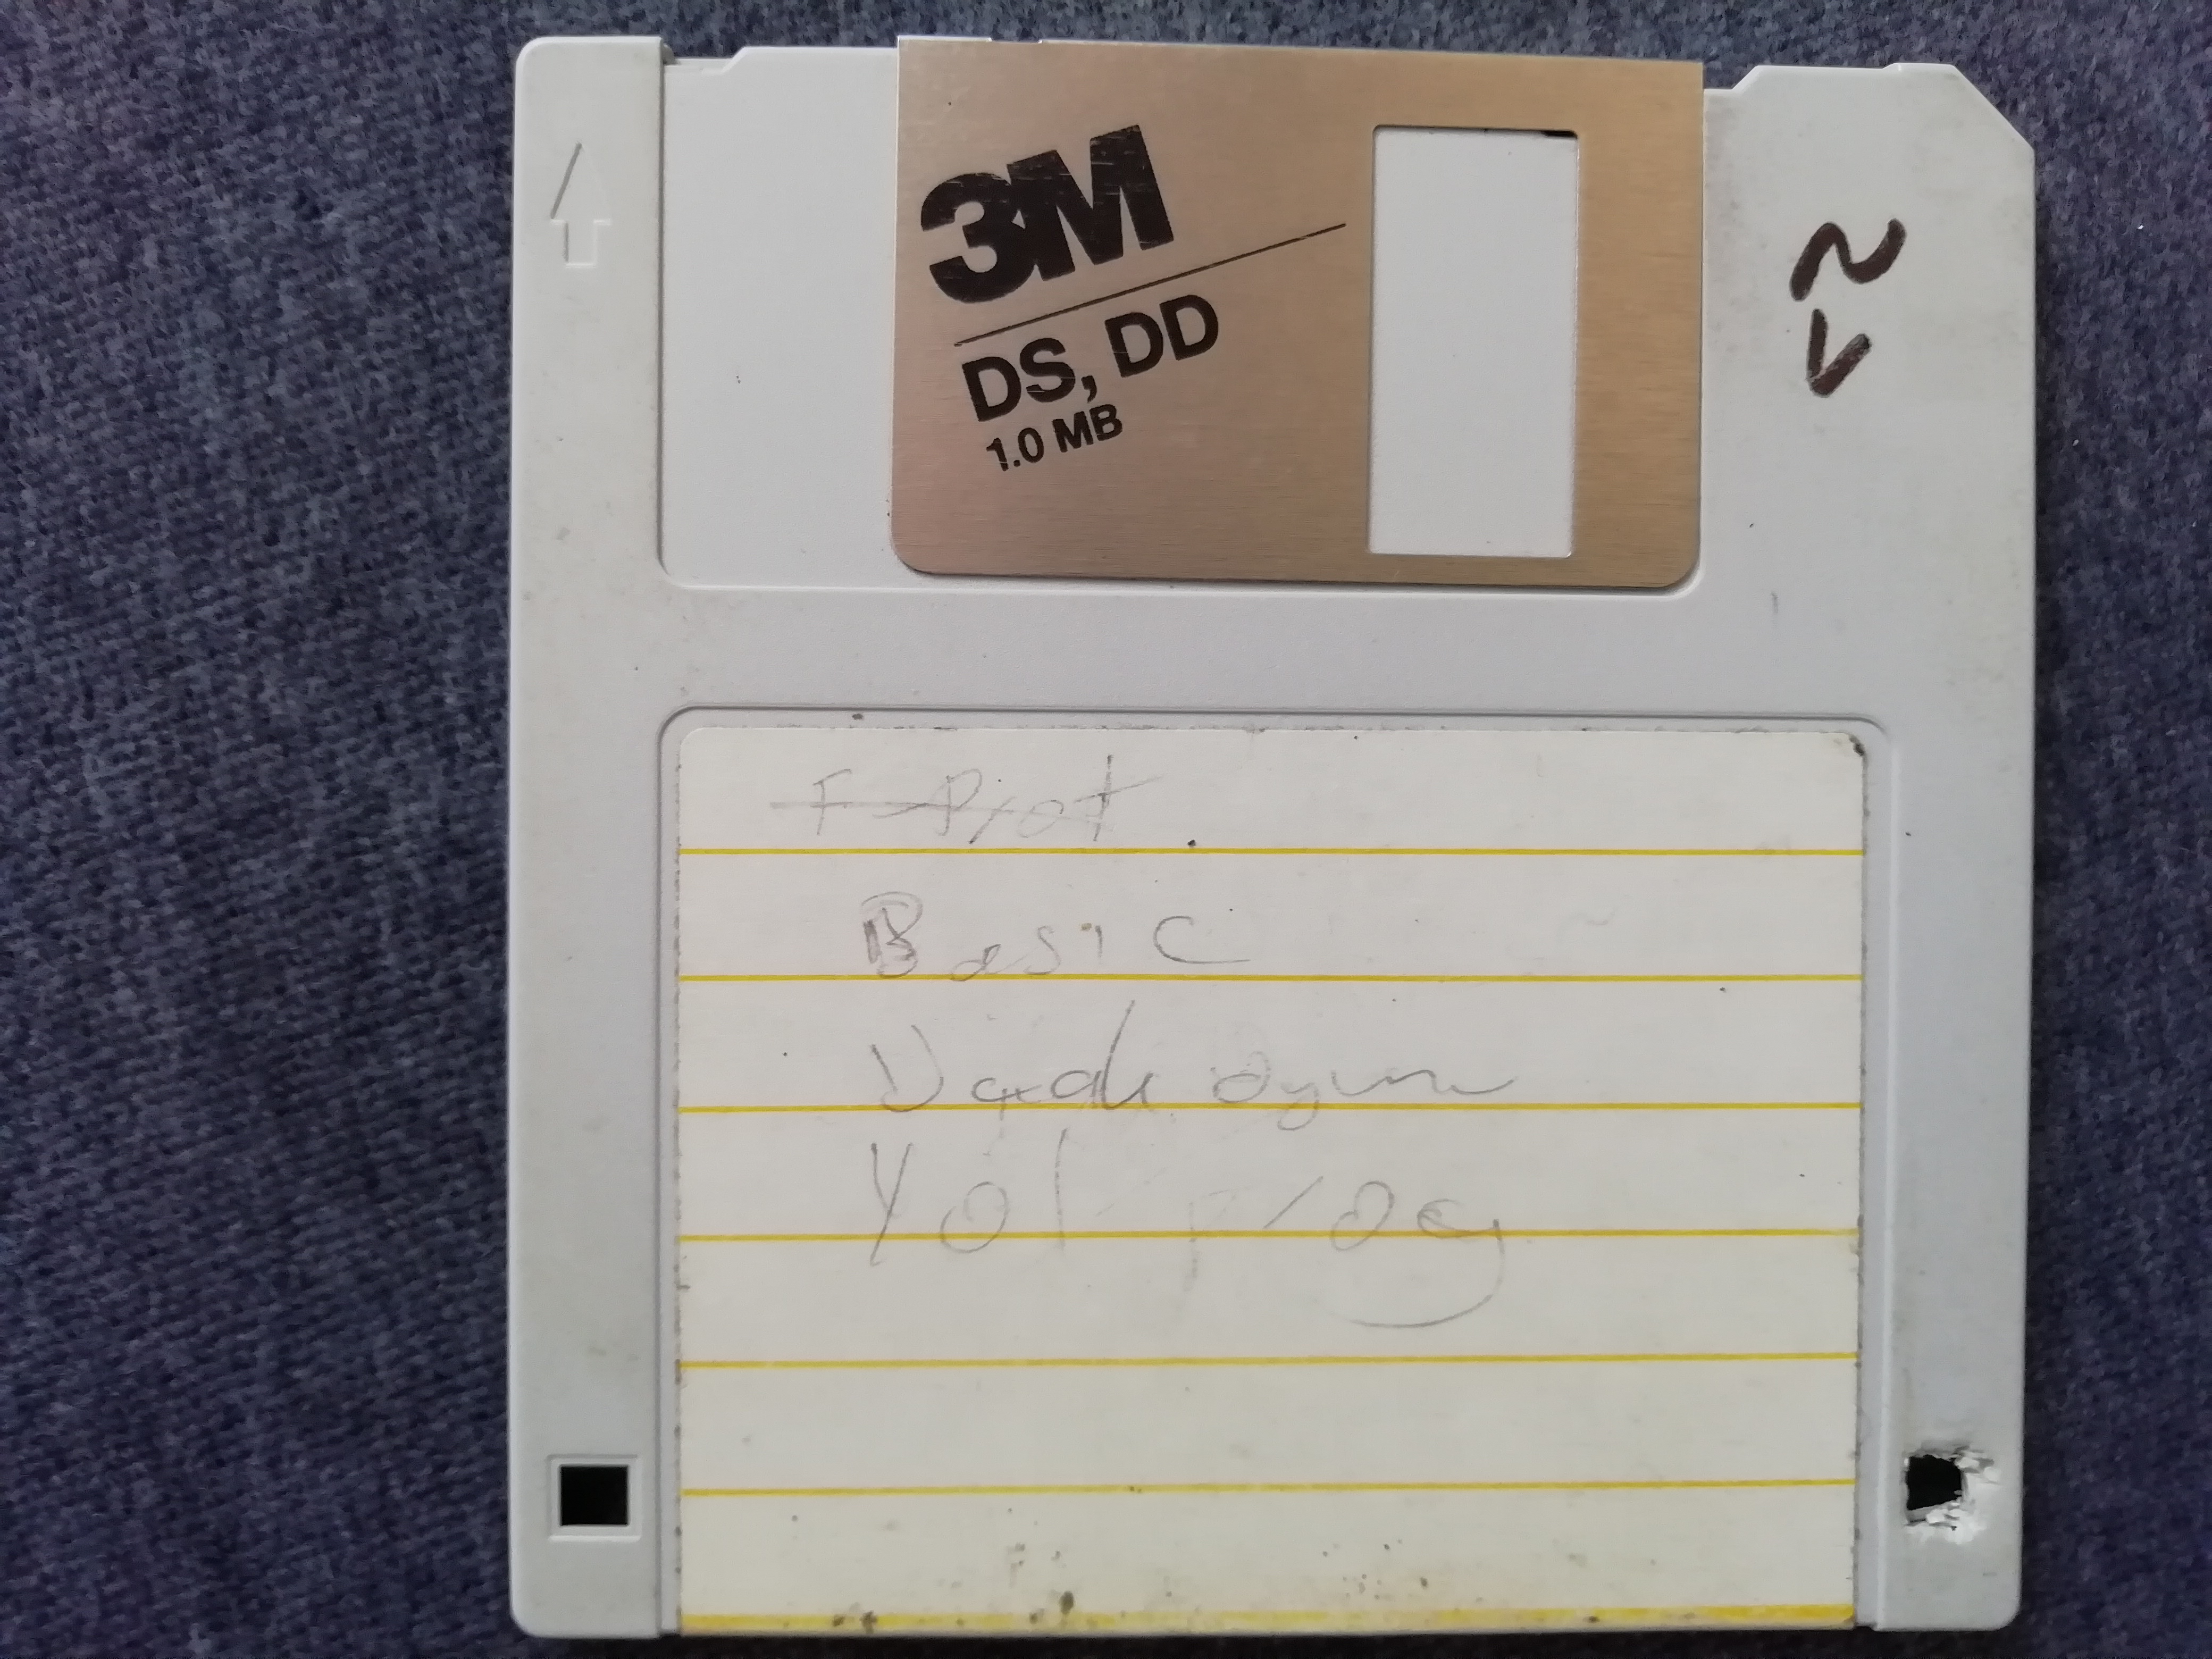 3M
DS, DD
1.0 MB
F-Prot
Basic
oyun
Yol prog